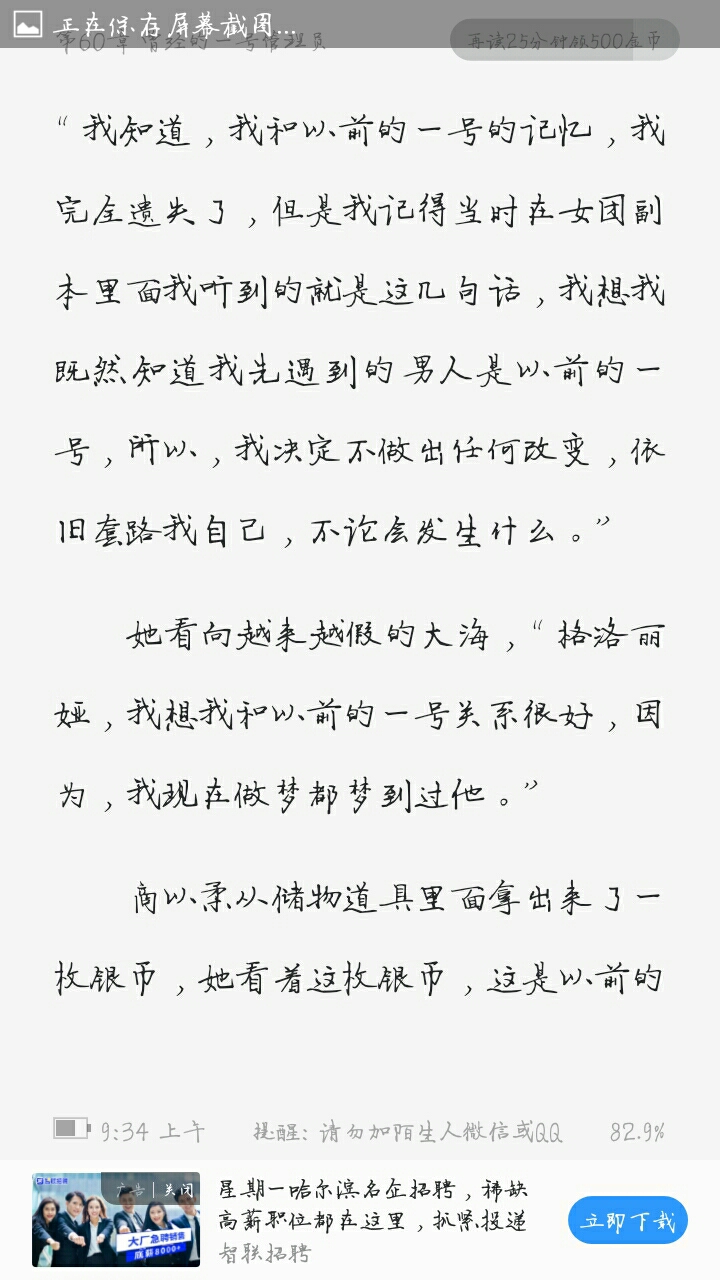 正在保存屏幕截图...
第60章 曾经的一号管理员
再读25分钟领500金币
“我知道，我和以前的一号的记忆，我
完全遗失了，但是我记得当时在女团副
本里面我听到的就是这几句话，我想我
既然知道我先遇到的男人是以前的一
号，所以，我决定不做出任何改变，依
旧套路我自己，不论会发生什么。”
她看向越来越假的大海，“格洛丽
娅，我想我和以前的一号关系很好，因
为，我现在做梦都梦到过他。”
商以柔从储物道具里面拿出来了一
枚银币，她看着这枚银币，这是以前的
9:34 上午
提醒: 请勿加陌生人微信或QQ
82.9%
广告 | 关闭
大厂急聘销售
底薪8000+
星期一哈尔滨名企招聘，稀缺
高薪职位都在这里，抓紧投递
智联招聘
立即下载